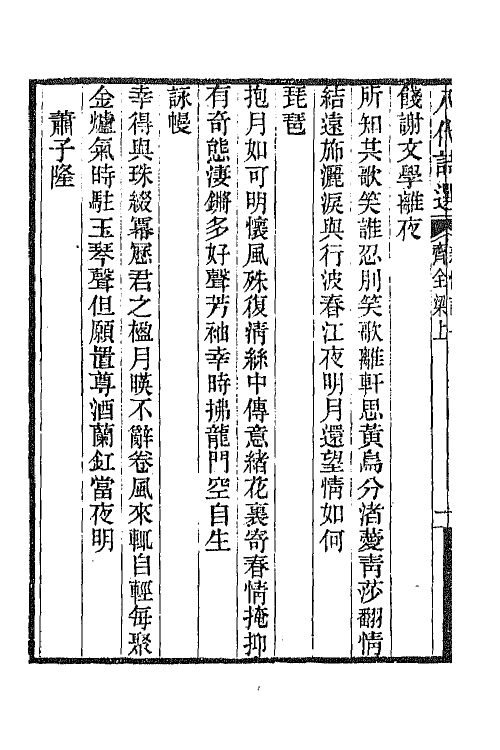 八代詩選
齊全梁上
餞謝文學離夜
所知共歌笑誰忍別笑歌離軒思黃鳥分渚薆靑莎翻情
結遠斾灑淚與行波春江夜明月還望情如何
琵琶
抱月如可明懷風殊復清絲中傳意緒花裏寄春情掩抑
有奇態淒鏘多好聲芳袖幸時拂龍門空自生
詠幔
幸得與珠綴羃䍥君之楹月暎不辭卷風來輒自輕每聚
金爐氣時駐玉琴聲但願置尊酒蘭釭當夜明
蕭子隆